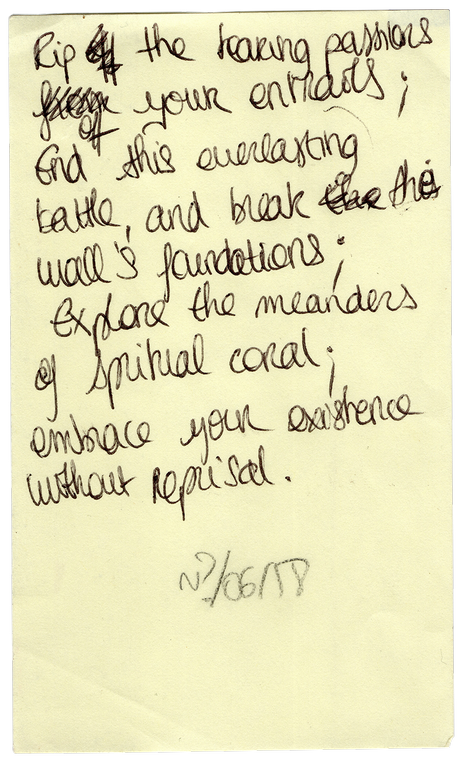 Rip the tearing passions
of your entrails;
End this everlasting
battle, and break this
wall's foundations;
Explore the meanders
of spiritual coral;
embrace your existence
without reprisal.